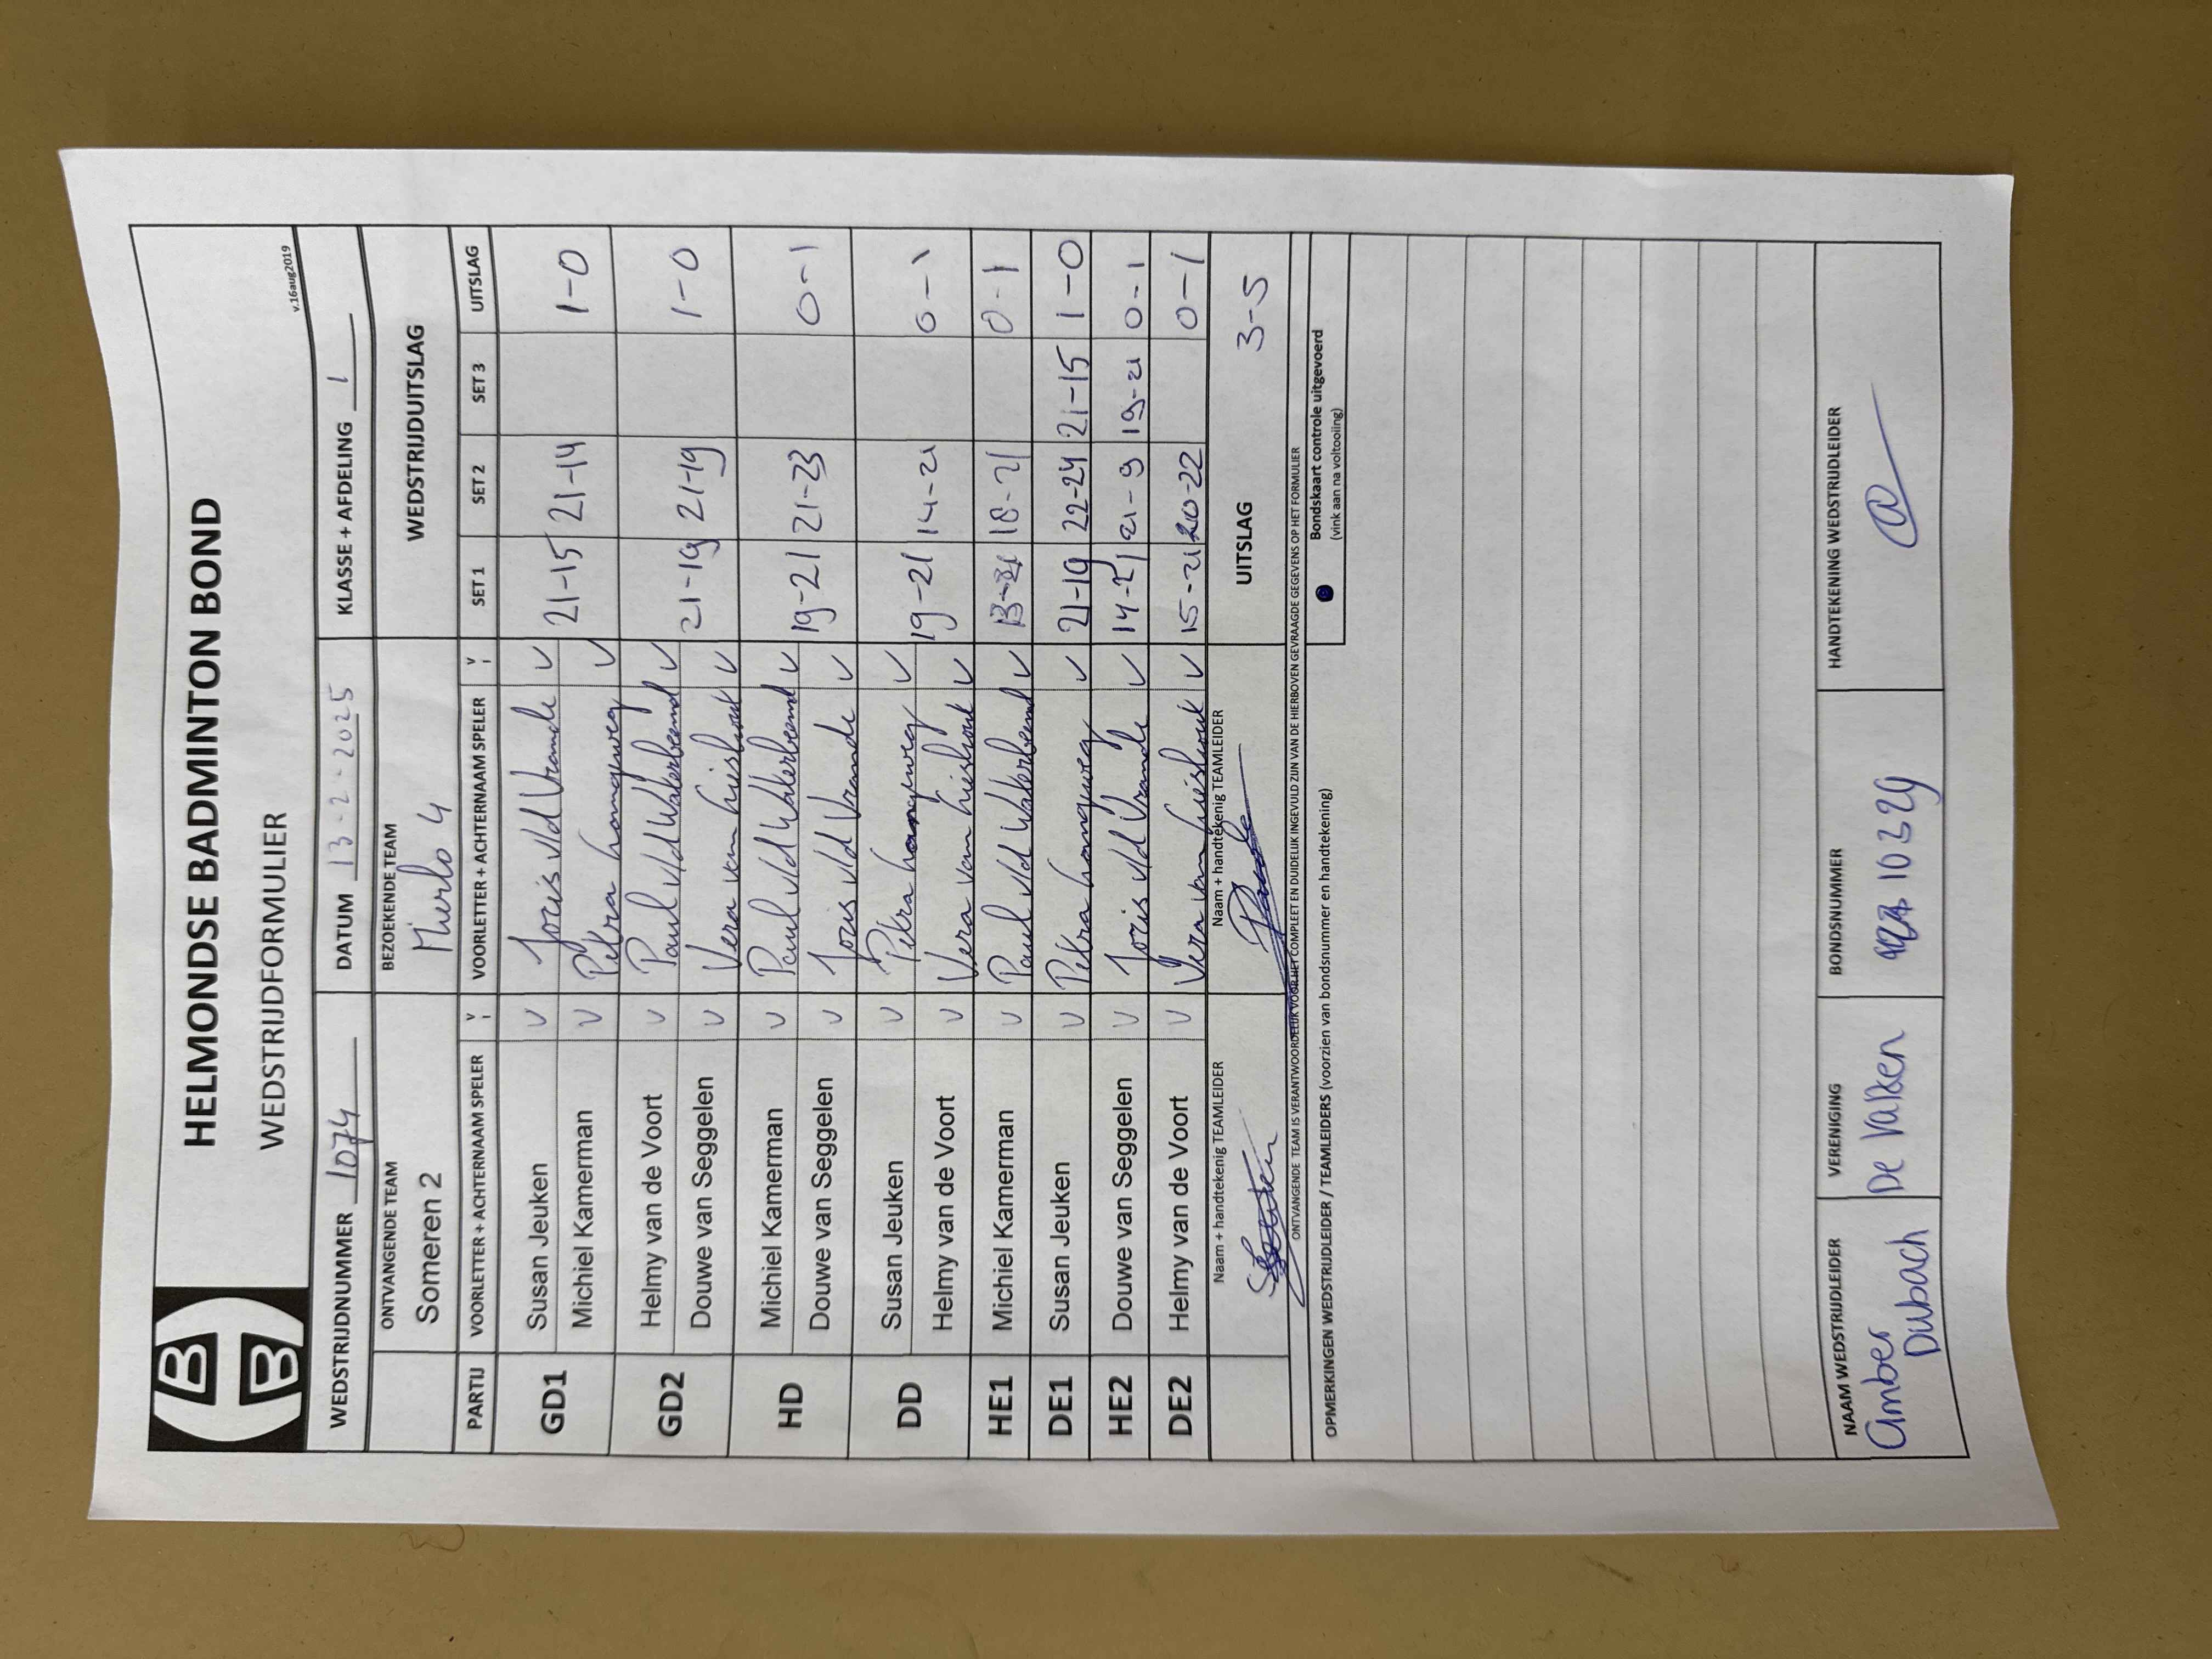 HELMONDSE BADMINTON BOND
WEDSTRIJDFORMULIER
v.16aug2019
WEDSTRIJDNUMMER 1074 DATUM 13-2-2025 KLASSE + AFDELING 1
ONTVANGENDE TEAM BEZOEKENDE TEAM WEDSTRIJDUITSLAG
Someren 2 Mierlo 4
PARTIJ VOORLETTER + ACHTERNAAM SPELER VOORLETTER + ACHTERNAAM SPELER SET 1 SET 2 SET 3 UITSLAG
GD1 Susan Jeuken V Joris v/d Vrande V 21-15 21-14 1-0
Michiel Kamerman V Petra V
GD2 Helmy van de Voort V Paul v/d Waterbeemd V 21-19 21-19 1-0
Douwe van Seggelen V Vera van Lieshout V
HD Michiel Kamerman V Paul v/d Waterbeemd V 19-21 21-23 0-1
Douwe van Seggelen V Joris v/d Vrande V
DD Susan Jeuken V Petra V 19-21 14-21 0-1
Helmy van de Voort V Vera van Lieshout V
HE1 Michiel Kamerman V Paul v/d Waterbeemd V 13-21 18-21 0-1
DE1 Susan Jeuken V Petra V 21-19 22-24 21-15 1-0
HE2 Douwe van Seggelen V Joris v/d Vrande V 14-21 21-9 19-21 0-1
DE2 Helmy van de Voort V Vera van Lieshout V 15-21 20-22 0-1
Naam + handtekenig TEAMLEIDER Naam + handtekenig TEAMLEIDER UITSLAG 3-5
ONTVANGENDE TEAM IS VERANTWOORDELIJK VOOR HET COMPLEET EN DUIDELIJK INGEVULD ZIJN VAN DE HIERBOVEN GEVRAAGDE GEGEVENS OP HET FORMULIER
OPMERKINGEN WEDSTRIJDLEIDER / TEAMLEIDERS (voorzien van bondsnummer en handtekening)
Bondskaart controle uitgevoerd
(vink aan na voltooiing)
NAAM WEDSTRIJDLEIDER VERENIGING BONDSNUMMER HANDTEKENING WEDSTRIJDLEIDER
Amber Dubach De Valken 10329